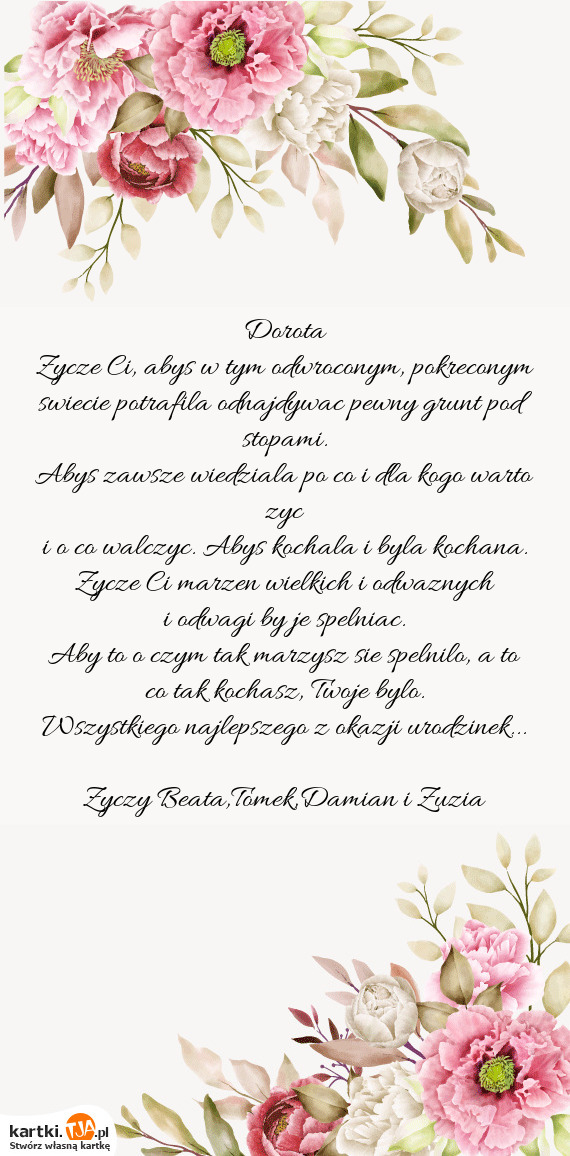 Dorota
Zycze Ci, abys w tym odwroconym, pokreconym
swiecie potrafila odnajdywac pewny grunt pod
stopami.
Abys zawsze wiedziala po co i dla kogo warto
zyc
i o co walczyc. Abys kochala i byla kochana.
Zycze Ci marzen wielkich i odwaznych
i odwagi by je spelniac.
Aby to o czym tak marzysz sie spelnilo, a to
co tak kochasz, Twoje bylo.
Wszystkiego najlepszego z okazji urodzinek...
Zyczy Beata,Tomek,Damian i Zuzia
kartki.TJA.pl
Stwórz własną kartkę